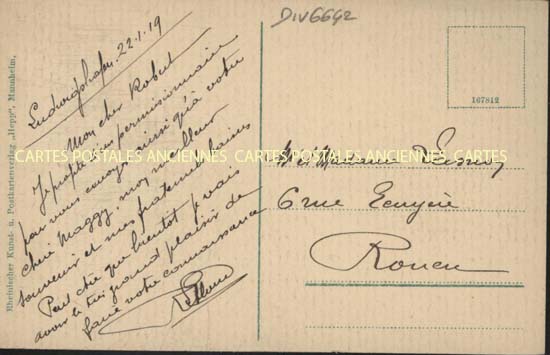 DIV6642
Ludwigshafen, 22-1-19
Mon cher Robert
Je profite d'un permissionnaire
pour vous envoyer ainsi qu'à votre
chère Maggy, mon meilleur
souvenir et mes fraternelles
Peut être que bientôt je vais
avoir le très grand plaisir de
faire votre connaissance
Rheinischer Kunst- u. Postkartenverlag „Hepp", Mannheim.
167812
CARTES POSTALES ANCIENNES CARTES POSTALES ANCIENNES CARTES POSTALES ANCIENNES
6 rue Ecuyère
Rouen